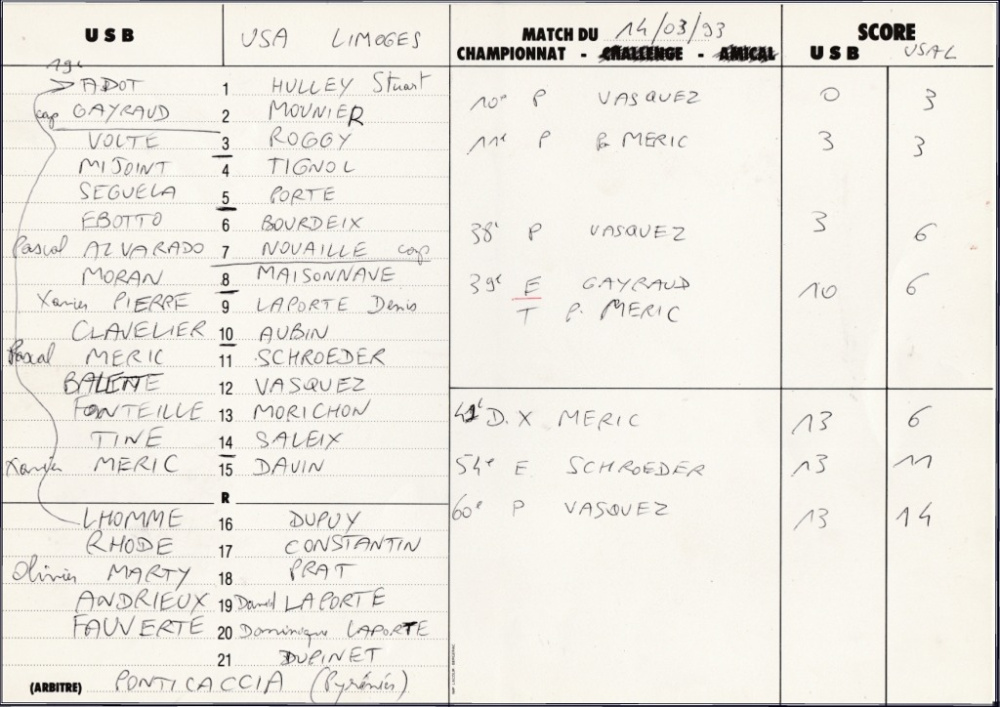 USB USA LIMOGES MATCH DU 14/03/93 SCORE
CHAMPIONNAT - CHALLENGE - AMICAL USB USAL
19'
ADOT 1 HULLEY Stuart
cap GAYRAUD 2 MOUNIER
VOLTE 3 ROGGY
MIJOINT 4 TIGNOL
SEGUELA 5 PORTE
EBOTTO 6 BOURDEIX
Pascal ALVARADO 7 NOUAILLE cap
MORAN 8 MAISONNAVE
Xavier PIERRE 9 LAPORTE Denis
CLAVELIER 10 AUBIN
Pascal MERIC 11 SCHROEDER
BALETTE 12 VASQUEZ
FONTEILLE 13 MORICHON
TINE 14 SALEIX
Xavier MERIC 15 DAVIN
R
LHOMME 16 DUPUY
RHODE 17 CONSTANTIN
Olivier MARTY 18 PRAT
ANDRIEUX 19 David LAPORTE
FAUVERTE 20 Dominique LAPORTE
21 DUPINET
(ARBITRE) PONTICACCIA (Pyrénées)
10e P VASQUEZ 0 3
11e P P. MERIC 3 3
38' P VASQUEZ 3 6
39e E GAYRAUD 10 6
T P. MERIC
41e D. X MERIC 13 6
54e E. SCHROEDER 13 11
60e P VASQUEZ 13 14